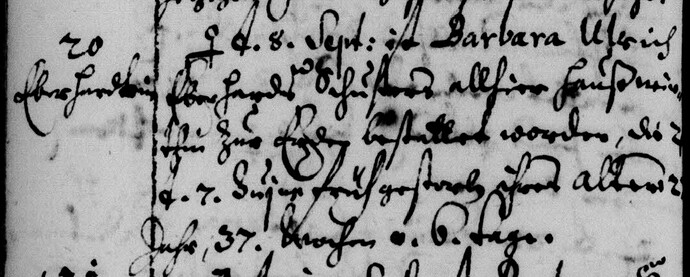 20
Eberhardtin
♀ d. 8. Sept: ist Barbara Ulrich
Eberhards Schusters allhier Haußwir-
thin zur Erden bestattet worden, die
d. 7. frühgestorb ihres Alters
Jahr, 37. Wochen v. 6. tage.